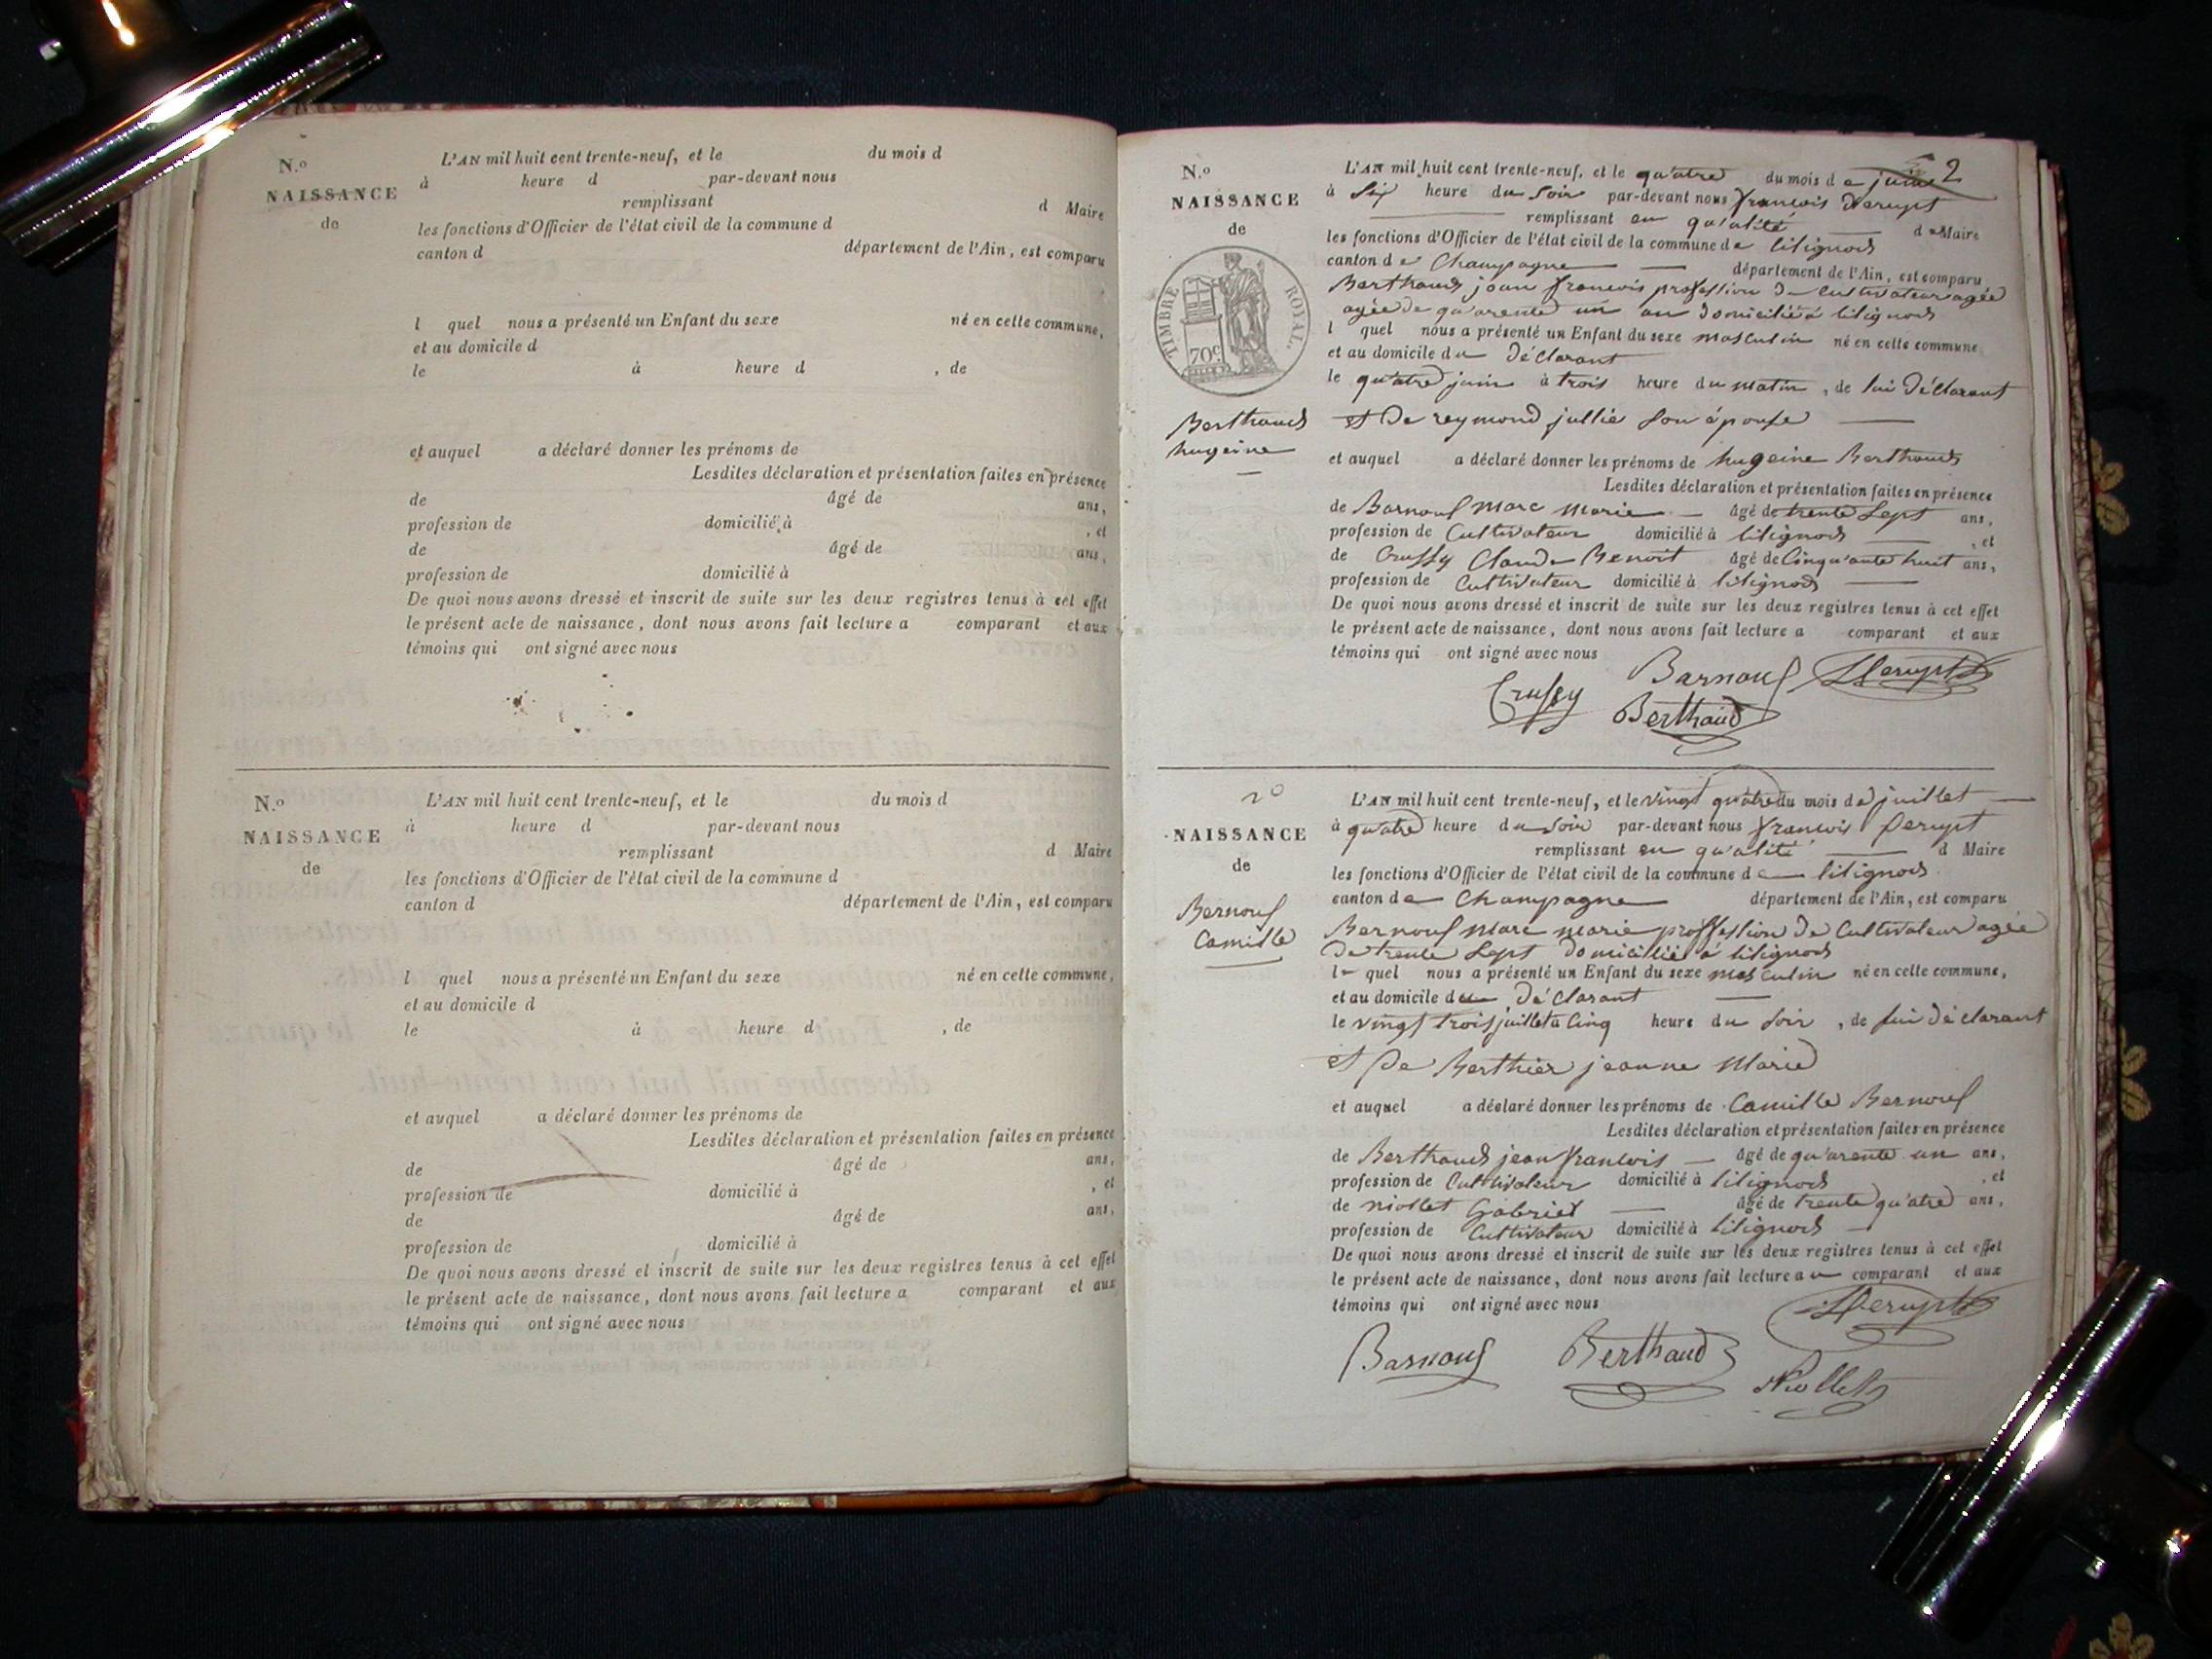 N.o
NAISSANCE
de
L'AN mil huit cent trente-neuf, et le du mois d
à heure d par-devant nous
remplissant d Maire
les fonctions d'Officier de l'état civil de la commune d
canton d département de l'Ain, est comparu
l quel nous a présenté un Enfant du sexe né en cette commune,
et au domicile d
le à heure d , de
et auquel a déclaré donner les prénoms de
Lesdites déclaration et présentation faites en présence
de âgé de ans,
profession de domicilié à , et
de âgé de ans,
profession de domicilié à
De quoi nous avons dressé et inscrit de suite sur les deux registres tenus à cet effet
le présent acte de naissance, dont nous avons fait lecture a comparant et aux
témoins qui ont signé avec nous
N.o
NAISSANCE
de
L'AN mil huit cent trente-neuf, et le du mois d
à heure d par-devant nous
remplissant d Maire
les fonctions d'Officier de l'état civil de la commune d
canton d département de l'Ain, est comparu
l quel nous a présenté un Enfant du sexe né en cette commune,
et au domicile d
le à heure d , de
et auquel a déclaré donner les prénoms de
Lesdites déclaration et présentation faites en présence
de âgé de ans,
profession de domicilié à , et
de âgé de ans,
profession de domicilié à
De quoi nous avons dressé et inscrit de suite sur les deux registres tenus à cet effet
le présent acte de naissance, dont nous avons fait lecture a comparant et aux
témoins qui ont signé avec nous
2
N.o
NAISSANCE
de
TIMBRE ROYAL.
70c
Berthaud
hugeine
L'AN mil huit cent trente-neuf, et le qu'atre du mois de juin
à Six heure du Soir par-devant nous françois Derupt
remplissant en qu'alité de Maire
les fonctions d'Officier de l'état civil de la commune de lilignod
canton de Champagne département de l'Ain, est comparu
Berthaud jean françois proffession de Cultivateur agée
agée de qu'arente un an domicilié à lilignod
l quel nous a présenté un Enfant du sexe masculin né en cette commune
et au domicile du déclarant
le qu'atre juin à trois heure du matin , de lui déclarant
et De reymond jullie Son épouse
et auquel a déclaré donner les prénoms de hugeine Berthaud
Lesdites déclaration et présentation faites en présence
de Barnouf marc marie âgé de trente Sept ans,
profession de Cultivateur domicilié à lilignod , et
de Crussy Claude Benoit âgé de Cinqu'ante huit ans,
profession de Cultivateur domicilié à lilignod
De quoi nous avons dressé et inscrit de suite sur les deux registres tenus à cet effet
le présent acte de naissance, dont nous avons fait lecture a comparant et aux
témoins qui ont signé avec nous
Barnouf Derupt
Crussy Berthaud
2o
NAISSANCE
de
Bernouf
Camille
L'AN mil huit cent trente-neuf, et le vingt qu'atre du mois de juillet
à qu'atre heure du Soir par-devant nous françois Derupt
remplissant en qu'alité d Maire
les fonctions d'Officier de l'état civil de la commune de lilignod
canton de Champagne département de l'Ain, est comparu
Bernouf Marc marie proffession de Cultivateur agée
De trente Sept domiciliée à lilignod
le quel nous a présenté un Enfant du sexe masculin né en cette commune,
et au domicile du Déclarant
le vingt trois juillet à Cinq heure du Soir , de lui déclarant
et De Berthier jeanne Marie
et auquel a déclaré donner les prénoms de Camille Bernouf
Lesdites déclaration et présentation faites en présence
de Berthaud jean francois âgé de qu'arente un ans,
profession de Cultivateur domicilié à lilignod , et
de niollet Gabriel âgé de trente qu'atre ans,
profession de Cultivateur domicilié à lilignod
De quoi nous avons dressé et inscrit de suite sur les deux registres tenus à cet effet
le présent acte de naissance, dont nous avons fait lecture au comparant et aux
témoins qui ont signé avec nous
Derupt
Barnouf Berthaud
Niollet